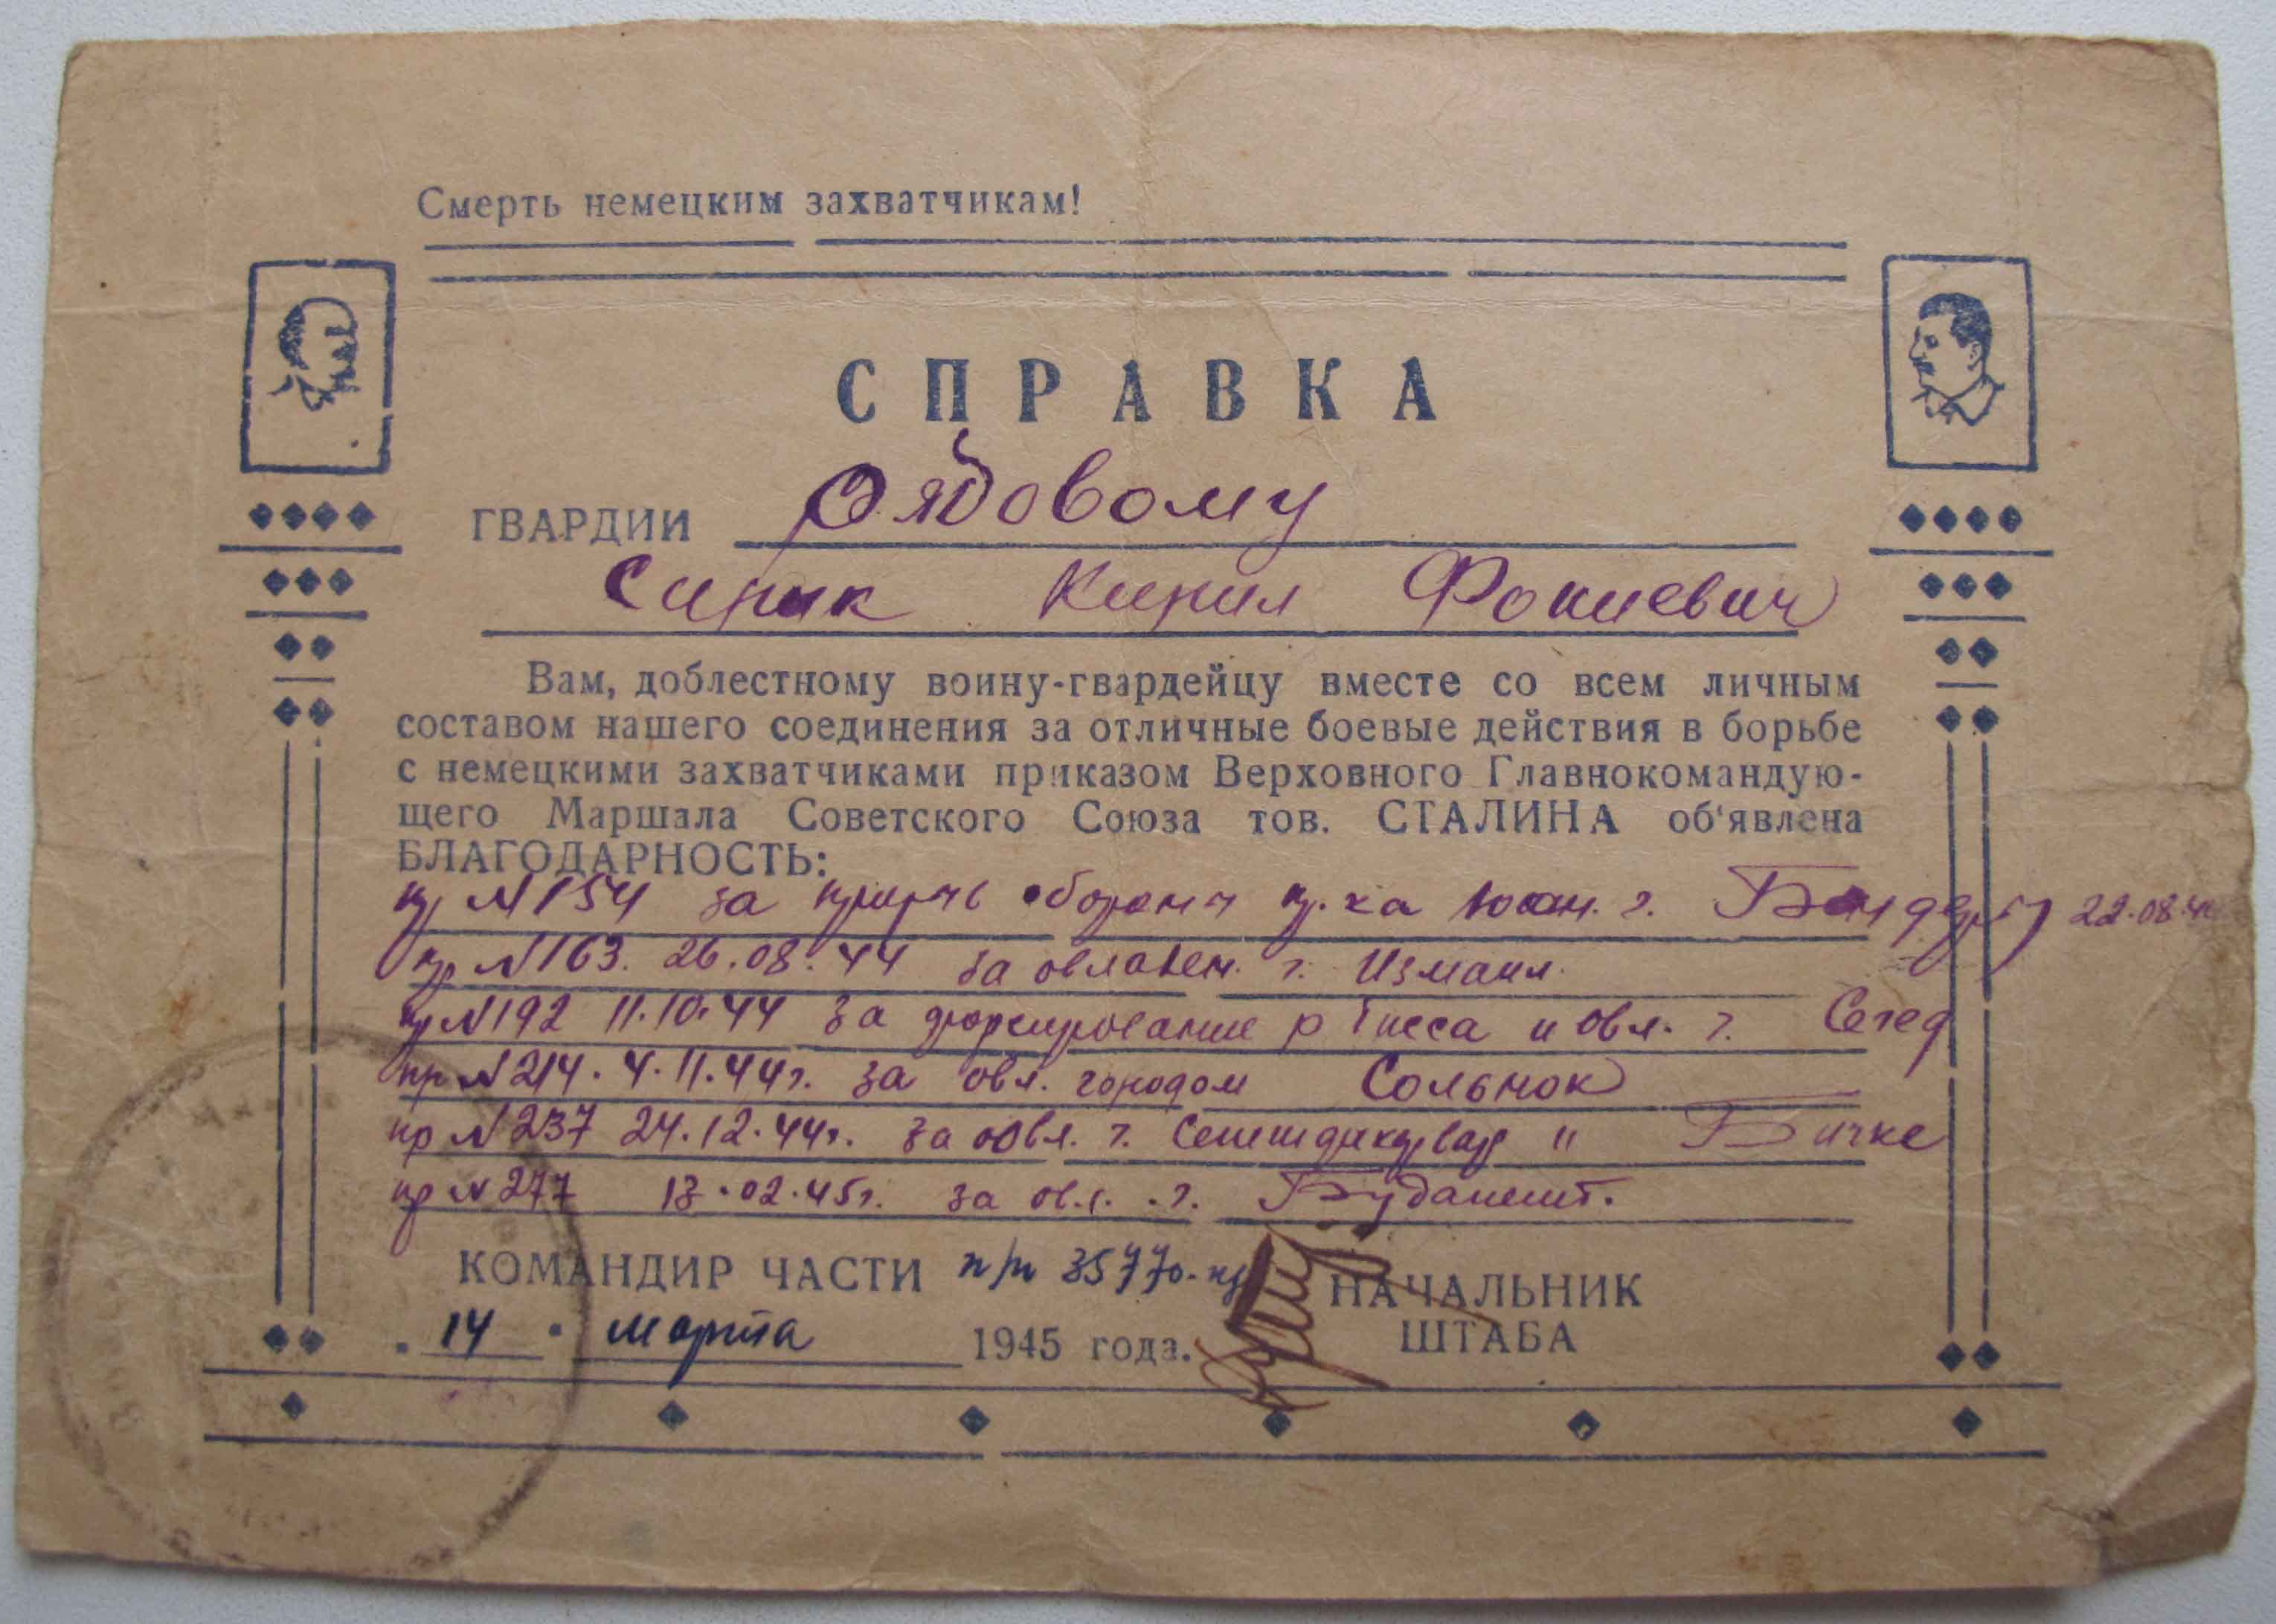 Смерть немецким захватчикам!
СПРАВКА
ГВАРДИИ Рядовому
Сирик Кирил Фокиевич
Вам, доблестному воину-гвардейцу вместе со всем личным
составом нашего соединения за отличные боевые действия в борьбе
с немецкими захватчиками приказом Верховного Главнокомандую-
щего Маршала Советского Союза тов. СТАЛИНА об'явлена
БЛАГОДАРНОСТЬ:
пр №154 за прорыв обороны пр-ка южн. г. Бендеры 22.08.44
пр №163. 26.08.44 за овладен. г. Измаил.
пр №192 11.10.44 за форсирование р Тисса и овл. г. Сегед
пр №214. 4.11.44г. за овл. городом Сольнок
пр №237 24.12.44г. за овл. г. Секешфехервар и Бичке
пр №277 13.02.45г. за овл. г. Будапешт.
КОМАНДИР ЧАСТИ п/п 35770 НАЧАЛЬНИК
ШТАБА
"14" марта 1945 года.